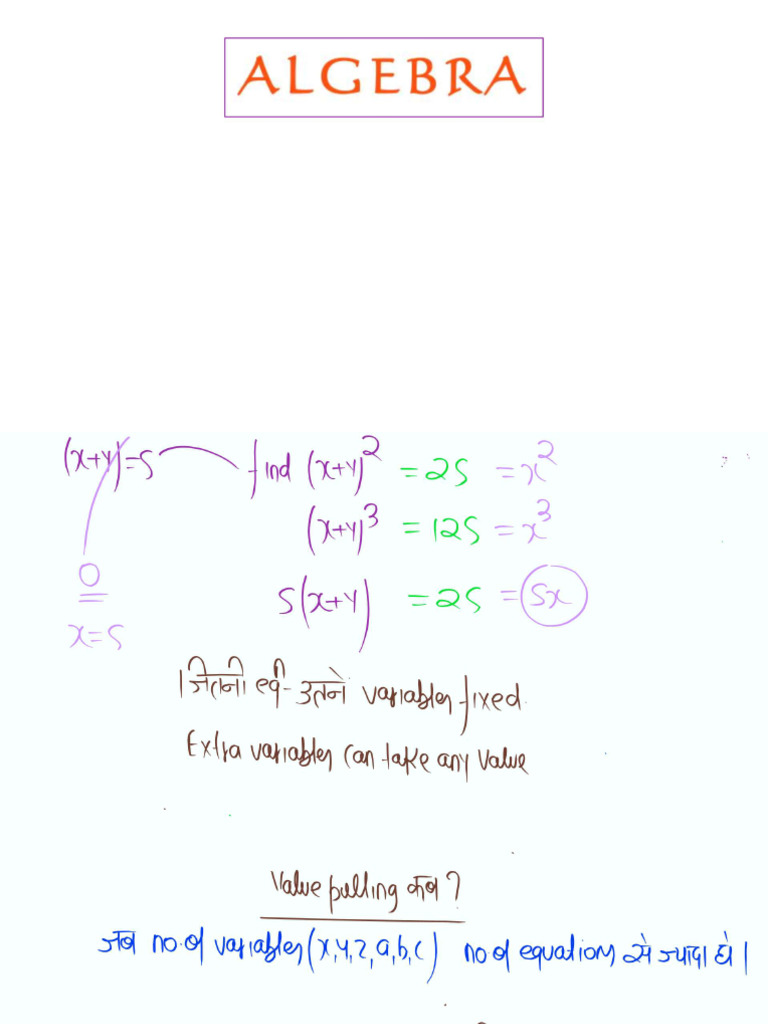 ALGEBRA
(x+y)=5 find (x+y)² = 25 = x²
(x+y)³ = 125 = x³
0
5(x+y) = 25 = 5x
x=5
जितनी eqn उतने variables fixed
Extra variables can take any value
Value putting कब ?
जब no. of variables (x,y,z,a,b,c) no of equations से ज्यादा हो।